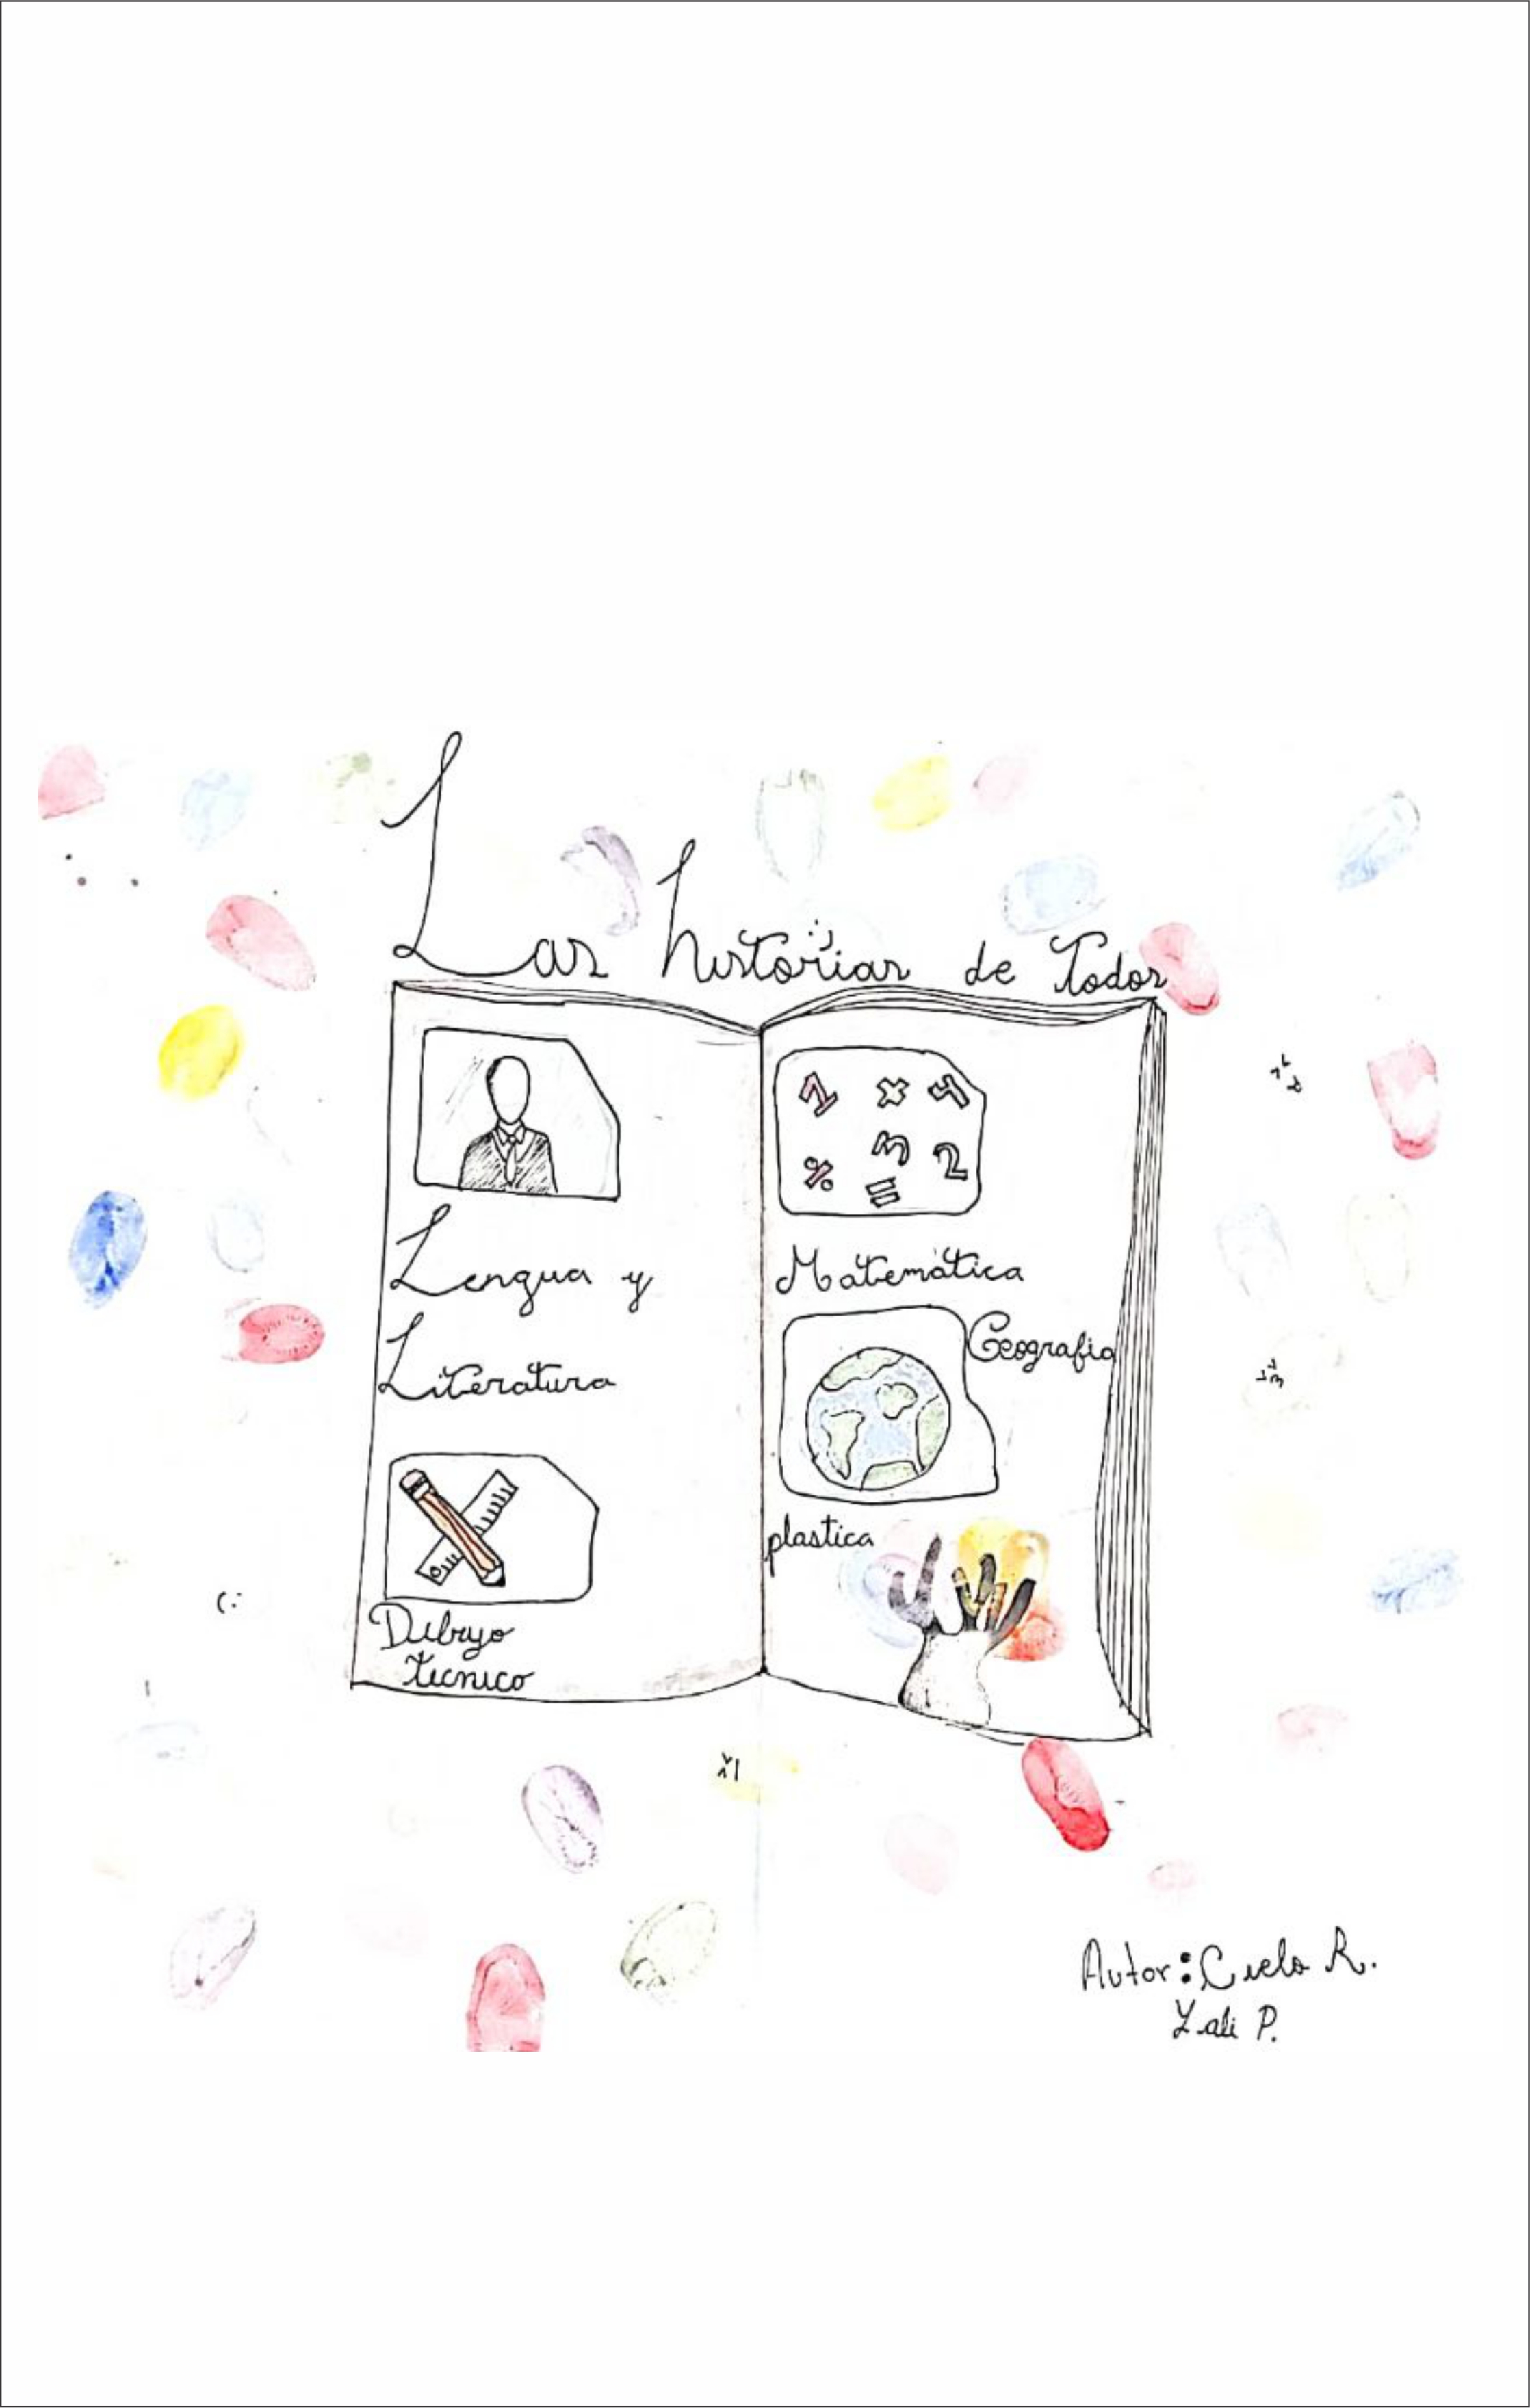 Las historias de Todos
Lengua y
Literatura
Dibujo
tecnico
1 x 4
% 3 2
=
Matemática
Geografia
plastica
Autor: Cielo R.
Lali P.